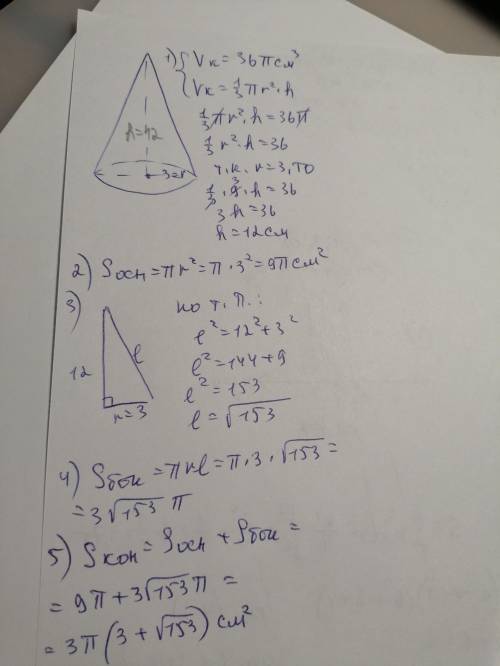 1) { Vк = 36π см³
Vк = 1/3 πr²·h
1/3 πr²·h = 36π
1/3 r²·h = 36
т.к. r=3, то
1/3·9·h = 36
3
3h = 36
h = 12 см
h=12
3=r
2) Sосн = πr² = π·3² = 9π см²
3)
12
l
r=3
по т. П.:
l² = 12² + 3²
l² = 144 + 9
l² = 153
l = √153
4) Sбок = πrl = π·3·√153 =
= 3√153 π
5) Sкон = Sосн + Sбок =
= 9π + 3√153 π =
= 3π(3 + √153) см²